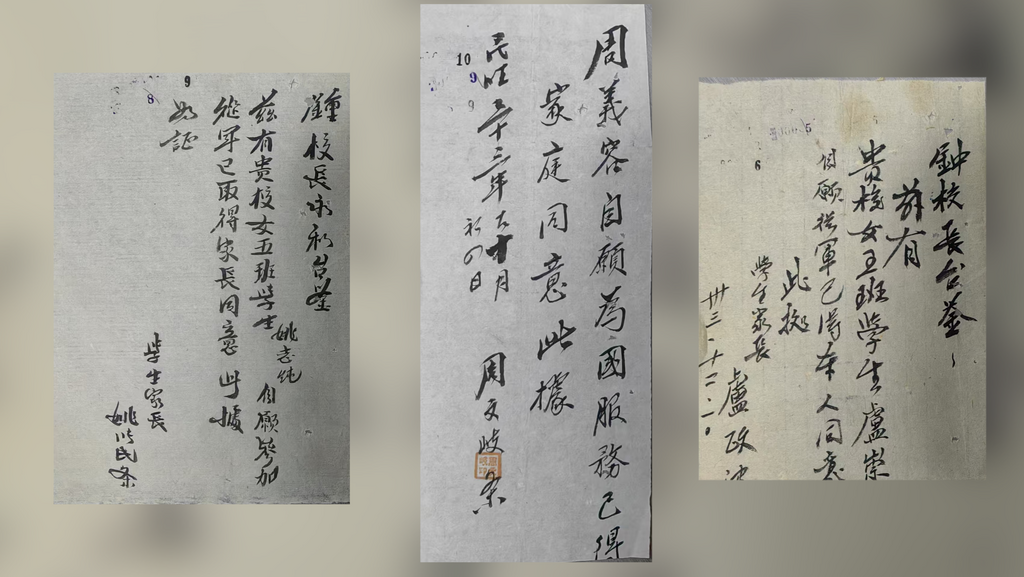 9
8
鍾校長 台鉴
兹有贵校女五班学生姚志纯自愿参加
從军已取得家長同意 此據
為証
学生家長
姚 民条
10
9
9
周義容自願為國服務已得
家庭同意此據
民 三十三年 十月
初 日
周文岐条
5
6
鈡校長台鉴
兹有
貴校女五班學生盧崇
自願從軍已得本人同意
此據
學生家長
盧政
卅三、十二、一。